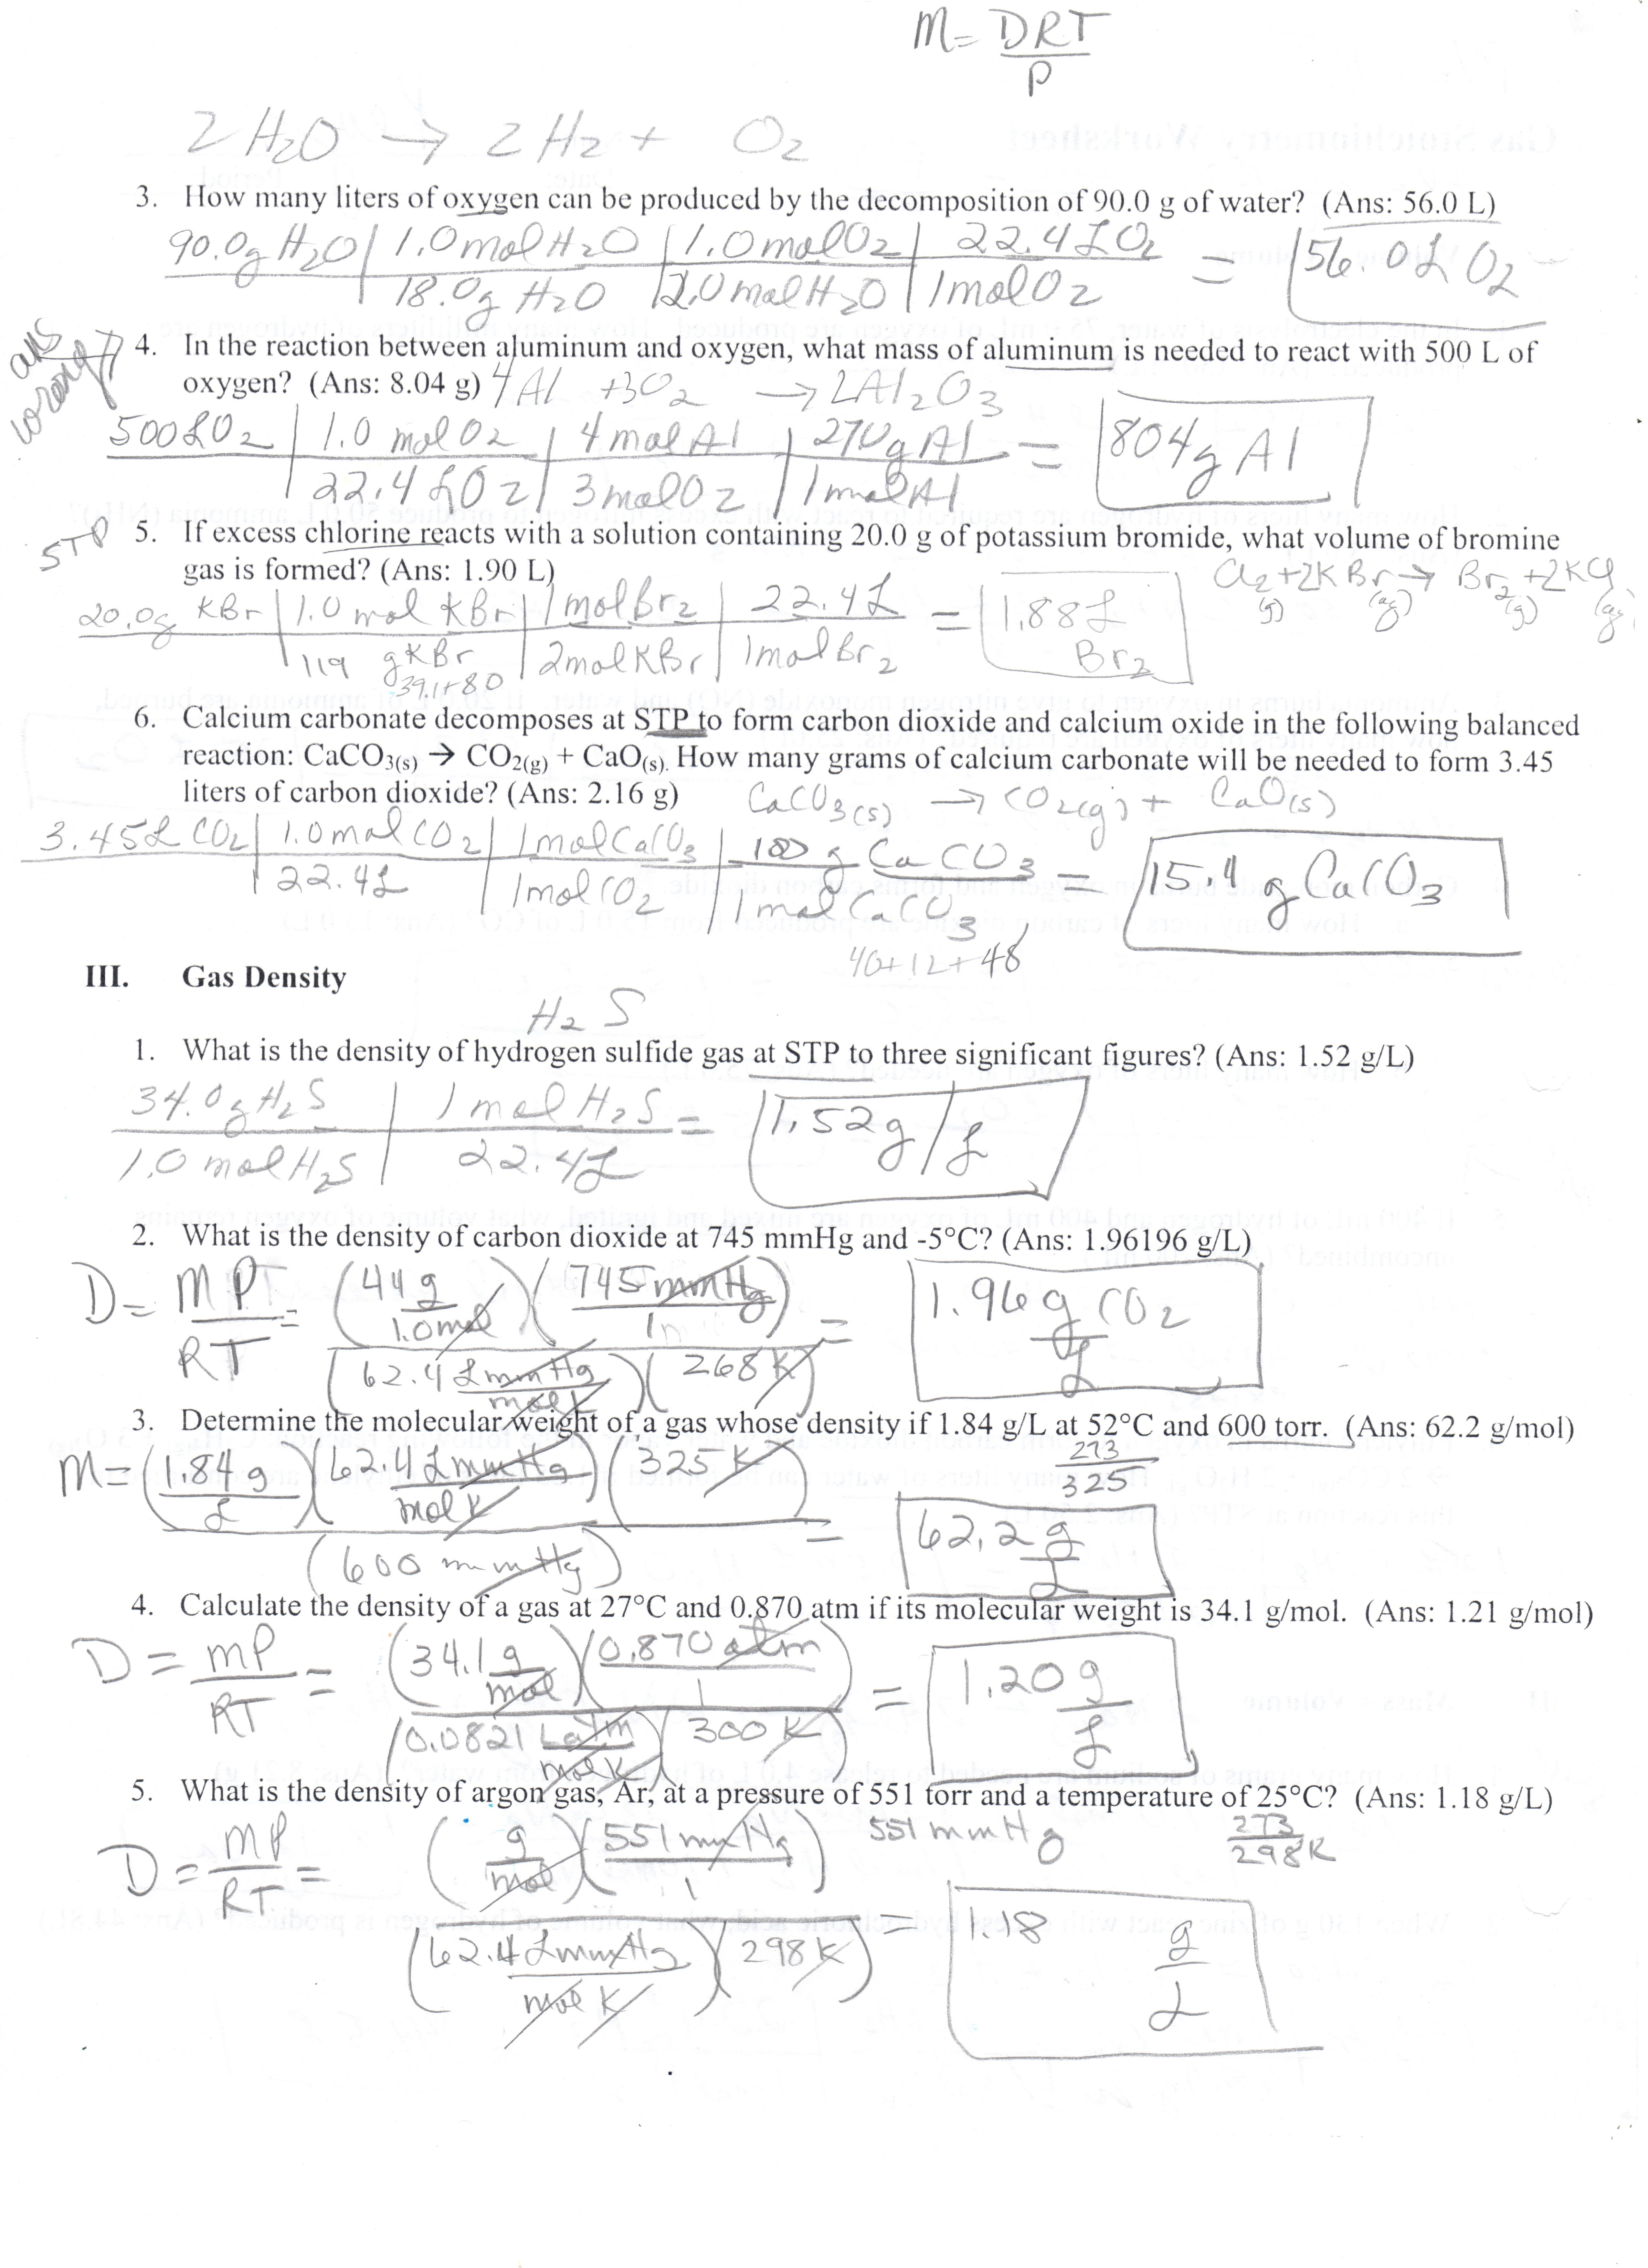 M= DRT
P
2 H2O → 2 H2 + O2
3. How many liters of oxygen can be produced by the decomposition of 90.0 g of water? (Ans: 56.0 L)
90.0g H2O | 1.0 mol H2O | 1.0 mol O2 | 22.4 L O2 = 56.0 L O2
18.0g H2O | 2.0 mol H2O | 1 mol O2
ans wrong
4. In the reaction between aluminum and oxygen, what mass of aluminum is needed to react with 500 L of
oxygen? (Ans: 8.04 g) 4 Al + 3O2 → 2Al2O3
500 L O2 | 1.0 mol O2 | 4 mol Al | 270g Al = 804 g Al
22.4 L O2 | 3 mol O2 | 1 mol Al
STP
5. If excess chlorine reacts with a solution containing 20.0 g of potassium bromide, what volume of bromine
gas is formed? (Ans: 1.90 L) Cl2 + 2KBr → Br2 + 2KCl
(g) (aq) (g) (aq)
20.0g KBr | 1.0 mol KBr | 1 mol Br2 | 22.4 L = 1.88 L Br2
119 g KBr | 2 mol KBr | 1 mol Br2
39.1+80
6. Calcium carbonate decomposes at STP to form carbon dioxide and calcium oxide in the following balanced
reaction: CaCO3(s) → CO2(g) + CaO(s). How many grams of calcium carbonate will be needed to form 3.45
liters of carbon dioxide? (Ans: 2.16 g) CaCO3(s) → CO2(g) + CaO(s)
3.45 L CO2 | 1.0 mol CO2 | 1 mol CaCO3 | 100 g CaCO3 = 15.4 g CaCO3
22.4 L | 1 mol CO2 | 1 mol CaCO3
40+12+48
III. Gas Density
H2S
1. What is the density of hydrogen sulfide gas at STP to three significant figures? (Ans: 1.52 g/L)
34.0g H2S | 1 mol H2S = 1.52 g/L
1.0 mol H2S | 22.4 L
2. What is the density of carbon dioxide at 745 mmHg and -5°C? (Ans: 1.96196 g/L)
D = MP = (44 g / 1.0 mol) (745 mmHg / 1) = 1.96 g CO2 / L
RT (62.4 L mmHg / mol K) (268 K)
3. Determine the molecular weight of a gas whose density if 1.84 g/L at 52°C and 600 torr. (Ans: 62.2 g/mol)
273
325
M = (1.84 g / L) (62.4 L mmHg / mol K) (325 K) = 62.2 g / L
(600 mmHg)
4. Calculate the density of a gas at 27°C and 0.870 atm if its molecular weight is 34.1 g/mol. (Ans: 1.21 g/mol)
D = MP = (34.1 g / mol) (0.870 atm / 1) = 1.20 g / L
RT (0.0821 L atm / mol K) (300 K)
5. What is the density of argon gas, Ar, at a pressure of 551 torr and a temperature of 25°C? (Ans: 1.18 g/L)
551 mmHg 273
298 K
D = MP = (g / mol) (551 mmHg / 1) = 1.18 g / L
RT (62.4 L mmHg / mol K) (298 K)